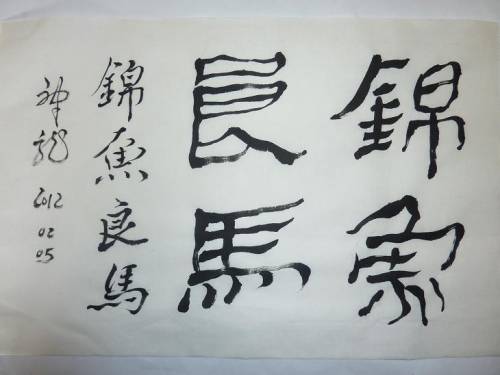 錦魚
良馬
錦魚良馬
神龍
2012
02
05